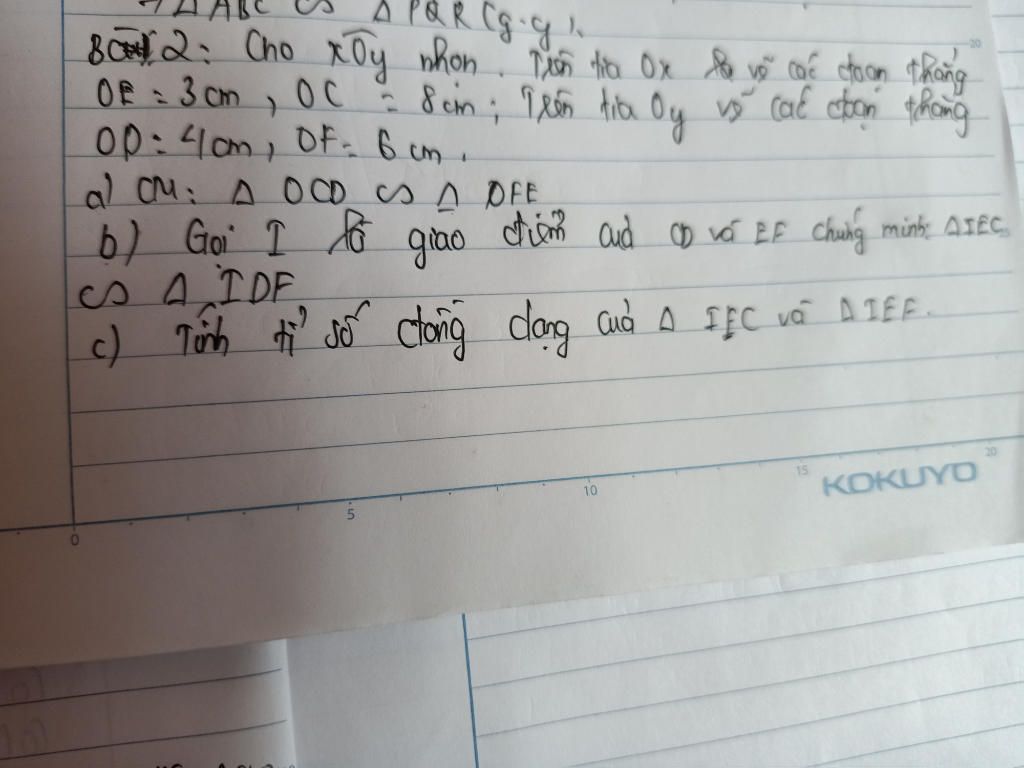 → Δ ABC ∽ Δ PQR (g.g).
Bài 2: Cho xOy nhọn. Trên tia Ox vẽ các đoạn thẳng
OE = 3 cm, OC = 8 cm; Trên tia Oy vẽ các đoạn thẳng
OD = 4 cm, OF = 6 cm.
a) CM: Δ OCD ∽ Δ OFE
b) Gọi I là giao điểm của CD và EF chứng minh: ΔIEC
∽ Δ IDF
c) Tính tỉ số đồng dạng của Δ IEC và Δ IEF.
0 5 10 15 20
KOKUYO
20